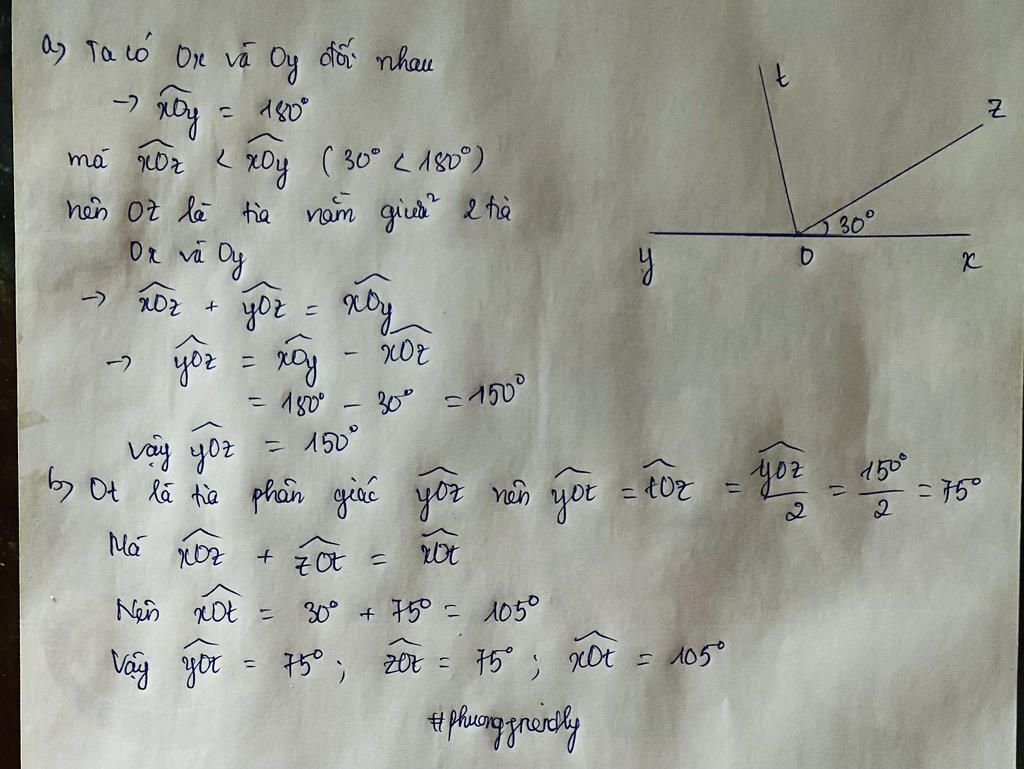 a) Ta có Ox và Oy đối nhau
→ xOy = 180°
mà xOz < xOy (30° < 180°)
nên Oz là tia nằm giữa 2 tia
Ox và Oy
→ xOz + yOz = xOy
→ yOz = xOy - xOz
= 180° - 30° = 150°
Vậy yOz = 150°
b) Ot là tia phân giác yOz nên yOt = tOz = yOz/2 = 150°/2 = 75°
Mà xOz + zOt = xOt
Nên xOt = 30° + 75° = 105°
Vậy yOt = 75° ; zOt = 75° ; xOt = 105°
#phuongfriendly
t
z
30°
y
O
x